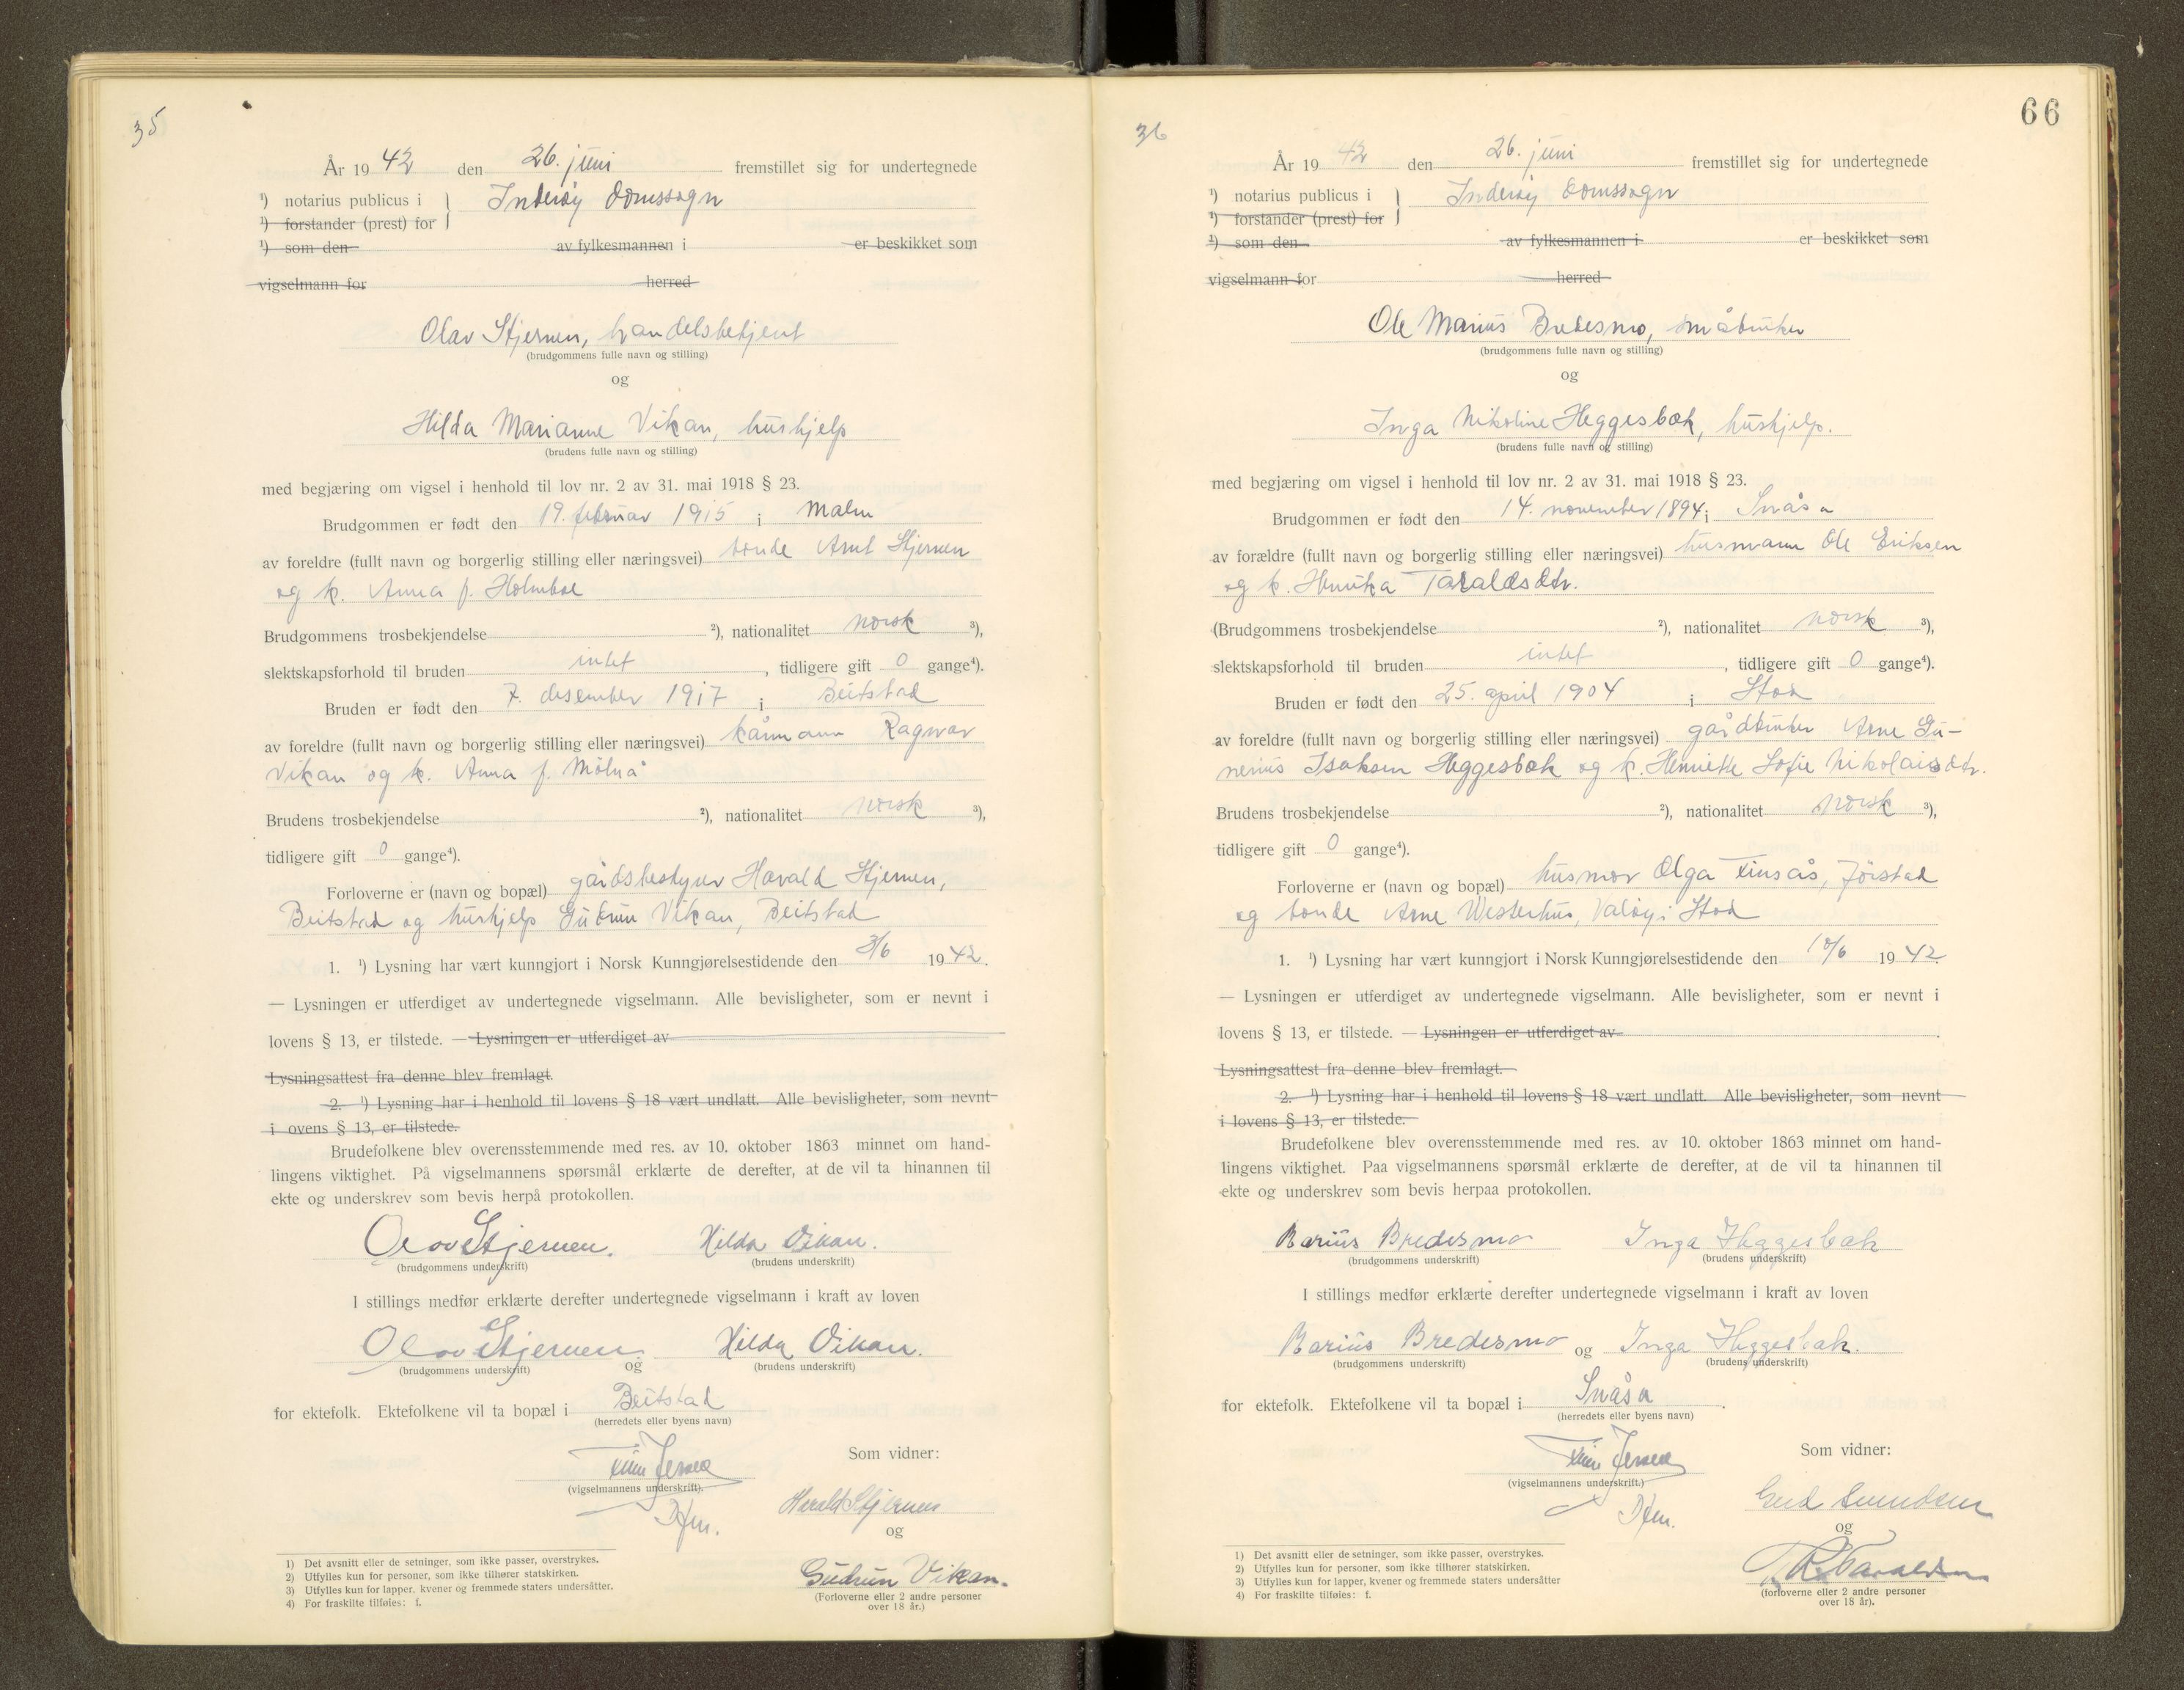 35
År 19 42 den 26. juni fremstillet sig for undertegnede
¹) notarius publicus i } Inderøy domssogn
¹) forstander (prest) for
¹) som den av fylkesmannen i er beskikket som
vigselmann for herred
Olav Stjernen, handelsbetjent
(brudgommens fulle navn og stilling)
og
Hilda Marianne Vikan, hushjelp
(brudens fulle navn og stilling)
med begjæring om vigsel i henhold til lov nr. 2 av 31. mai 1918 § 23.
Brudgommen er født den 19. februar 1915 i Malm
av foreldre (fullt navn og borgerlig stilling eller næringsvei) bonde Arnt Stjernen
og k. Anna f. Holmboe
Brudgommens trosbekjendelse ²), nationalitet norsk ³),
slektskapsforhold til bruden intet, tidligere gift 0 gange⁴).
Bruden er født den 7. desember 1917 i Beitstad
av foreldre (fullt navn og borgerlig stilling eller næringsvei) kårmann Ragnvar
Vikan og k. Anna f. Mølnå
Brudens trosbekjendelse ²), nationalitet norsk ³),
tidligere gift 0 gange⁴).
Forloverne er (navn og bopæl) gårdsbestyrer Harald Stjernen,
Beitstad og hushjelp Gudrun Vikan, Beitstad
1. ¹) Lysning har vært kunngjort i Norsk Kunngjørelsestidende den 3/6 19 42.
— Lysningen er utferdiget av undertegnede vigselmann. Alle bevisligheter, som er nevnt i
lovens § 13, er tilstede. — Lysningen er utferdiget av
Lysningsattest fra denne blev fremlagt.
2. ¹) Lysning har i henhold til lovens § 18 vært undlatt. Alle bevisligheter, som nevnt
i ovens § 13, er tilstede.
Brudefolkene blev overensstemmende med res. av 10. oktober 1863 minnet om hand-
lingens viktighet. På vigselmannens spørsmål erklærte de derefter, at de vil ta hinannen til
ekte og underskrev som bevis herpå protokollen.
Olav Stjernen. Hilda Vikan.
(brudgommens underskrift) (brudens underskrift)
I stillings medfør erklærte derefter undertegnede vigselmann i kraft av loven
Olav Stjernen og Hilda Vikan.
(brudgommens underskrift) (brudens underskrift)
for ektefolk. Ektefolkene vil ta bopæl i Beitstad
(herredets eller byens navn)
Som vidner:
(vigselmannens underskrift).
Harald Stjernen
og
Gudrun Vikan.
(Forloverne eller 2 andre personer
over 18 år.)
1) Det avsnitt eller de setninger, som ikke passer, overstrykes.
2) Utfylles kun for personer, som ikke tilhører statskirken.
3) Utfylles kun for lapper, kvener og fremmede staters undersåtter.
4) For fraskilte tilføies: f.
66
36
År 19 42 den 26. juni fremstillet sig for undertegnede
¹) notarius publicus i } Inderøy domssogn
¹) forstander (prest) for
¹) som den av fylkesmannen i er beskikket som
vigselmann for herred
Ole Marius Bredesmo, småbruker
(brudgommens fulle navn og stilling)
og
Inga Nikoline Heggesbæk, hushjelp.
(brudens fulle navn og stilling)
med begjæring om vigsel i henhold til lov nr. 2 av 31. mai 1918 § 23.
Brudgommen er født den 14. november 1894 i Snåsa
av forældre (fullt navn og borgerlig stilling eller næringsvei) husmann Ole Eriksen
og k. Henrika Taraldsdtr.
(Brudgommens trosbekjendelse ²), nationalitet norsk ³),
slektskapsforhold til bruden intet, tidligere gift 0 gange⁴).
Bruden er født den 25. april 1904 i Stod
av foreldre (fullt navn og borgerlig stilling eller næringsvei) gårdbruker Arne Gu-
nerius Isaksen Heggesbæk og k. Henriette Sofie Nikolaisdtr.
Brudens trosbekjendelse ²), nationalitet norsk ³),
tidligere gift 0 gange⁴).
Forloverne er (navn og bopæl) husmor Olga Finsås, Jørstad
og bonde Arne Westerhus, Valøy i Stod
1. ¹) Lysning har vært kunngjort i Norsk Kunngjørelsestidende den 10/6 19 42.
— Lysningen er utferdiget av undertegnede vigselmann. Alle bevisligheter, som er nevnt i
lovens § 13, er tilstede. — Lysningen er utferdiget av .
Lysningsattest fra denne blev fremlagt.
2. ¹) Lysning har i henhold til lovens § 18 vært undlatt. Alle bevisligheter, som nevnt
i lovens § 13, er tilstede.
Brudefolkene blev overensstemmende med res. av 10. oktober 1863 minnet om hand-
lingens viktighet. Paa vigselmannens spørsmål erklærte de derefter, at de vil ta hinannen til
ekte og underskrev som bevis herpaa protokollen.
Marius Bredesmo Inga Heggesbæk
(brudgommens underskrift) (brudens underskrift)
I stillings medfør erklærte derefter undertegnede vigselmann i kraft av loven
Marius Bredesmo og Inga Heggesbæk.
(brudgommens underskrift) (brudens underskrift)
for ektefolk. Ektefolkene vil ta bopæl i Snåsa .
(herredets eller byens navn)
Som vidner:
(vigselmannens underskrift.)
og
(forloverne eller 2 andre personer
over 18 år).
1) Det avsnitt eller de setninger, som ikke passer, overstrykes.
2) Utfylles kun for personer, som ikke tilhører statskirken.
3) Utfylles kun for lapper, kvener og fremmede staters undersåtter
4) For fraskilte tilføies: f.